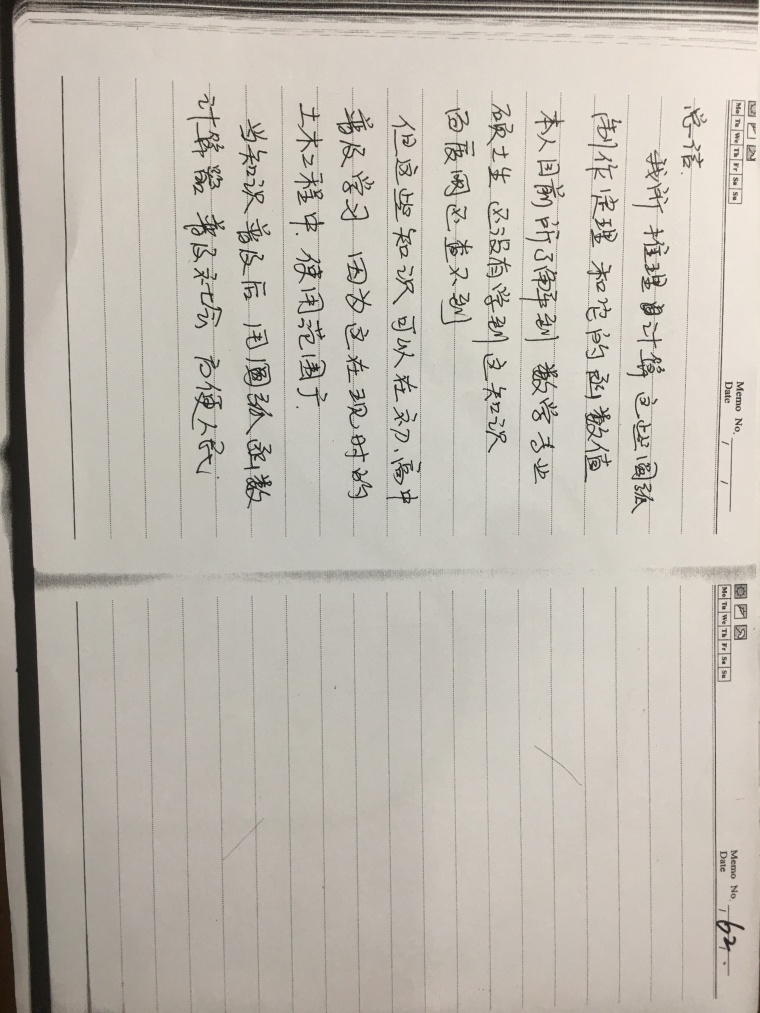 Mo Tu We Th Fr Sa Su
Memo No.
Date / /
总结.
我所推理及计算这些圆弧
制作定理和它的函数值
本人目前所了解到数学专业
硕士生还没有学到这知识
百度网还查不到
但这些知识可以在初、高中
普及学习 因为这在现时的
土木工程中.使用范围广.
当知识普及后 用圆弧函数
计算器普及社会 方便人民;
Mo Tu We Th Fr Sa Su
Memo No. 62.
Date /